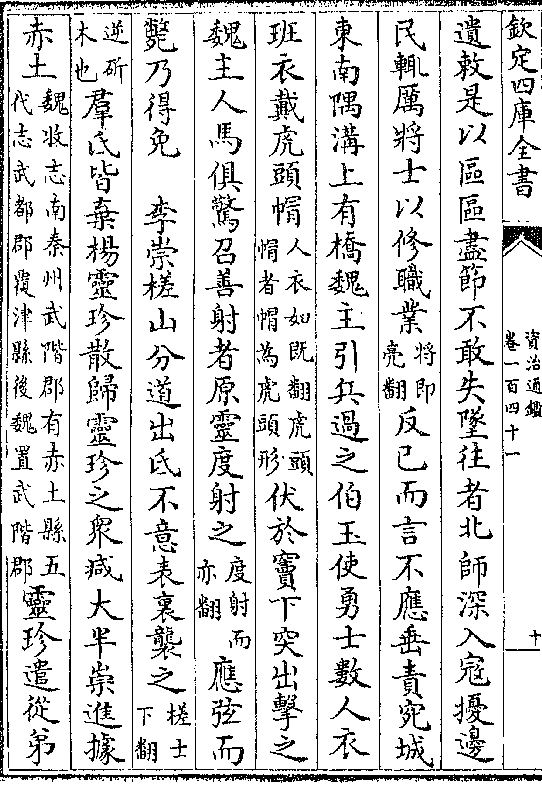 欽定四庫全書
資治通鑑
卷一百四十一
十
遺敕是以區區盡節不敢失墜往者北師深入寇擾邊
民輒厲將士以修職業將即亮翻反已而言不應垂責宛城
東南隅溝上有橋魏主引兵過之伯玉使勇士數人衣
班衣戴虎頭帽人衣如既翻虎頭帽者帽為虎頭形伏於竇下突出擊之
魏主人馬俱驚召善射者原靈度射之度射而亦翻應弦而
斃乃得免　李崇槎山分道出氐不意表裏襲之槎士下翻
逆斫木也羣氐皆棄楊靈珍散歸靈珍之衆減大半崇進據
赤土魏收志南秦州武階郡有赤土縣五代志武都郡覆津縣後魏置武階郡靈珍遣從弟